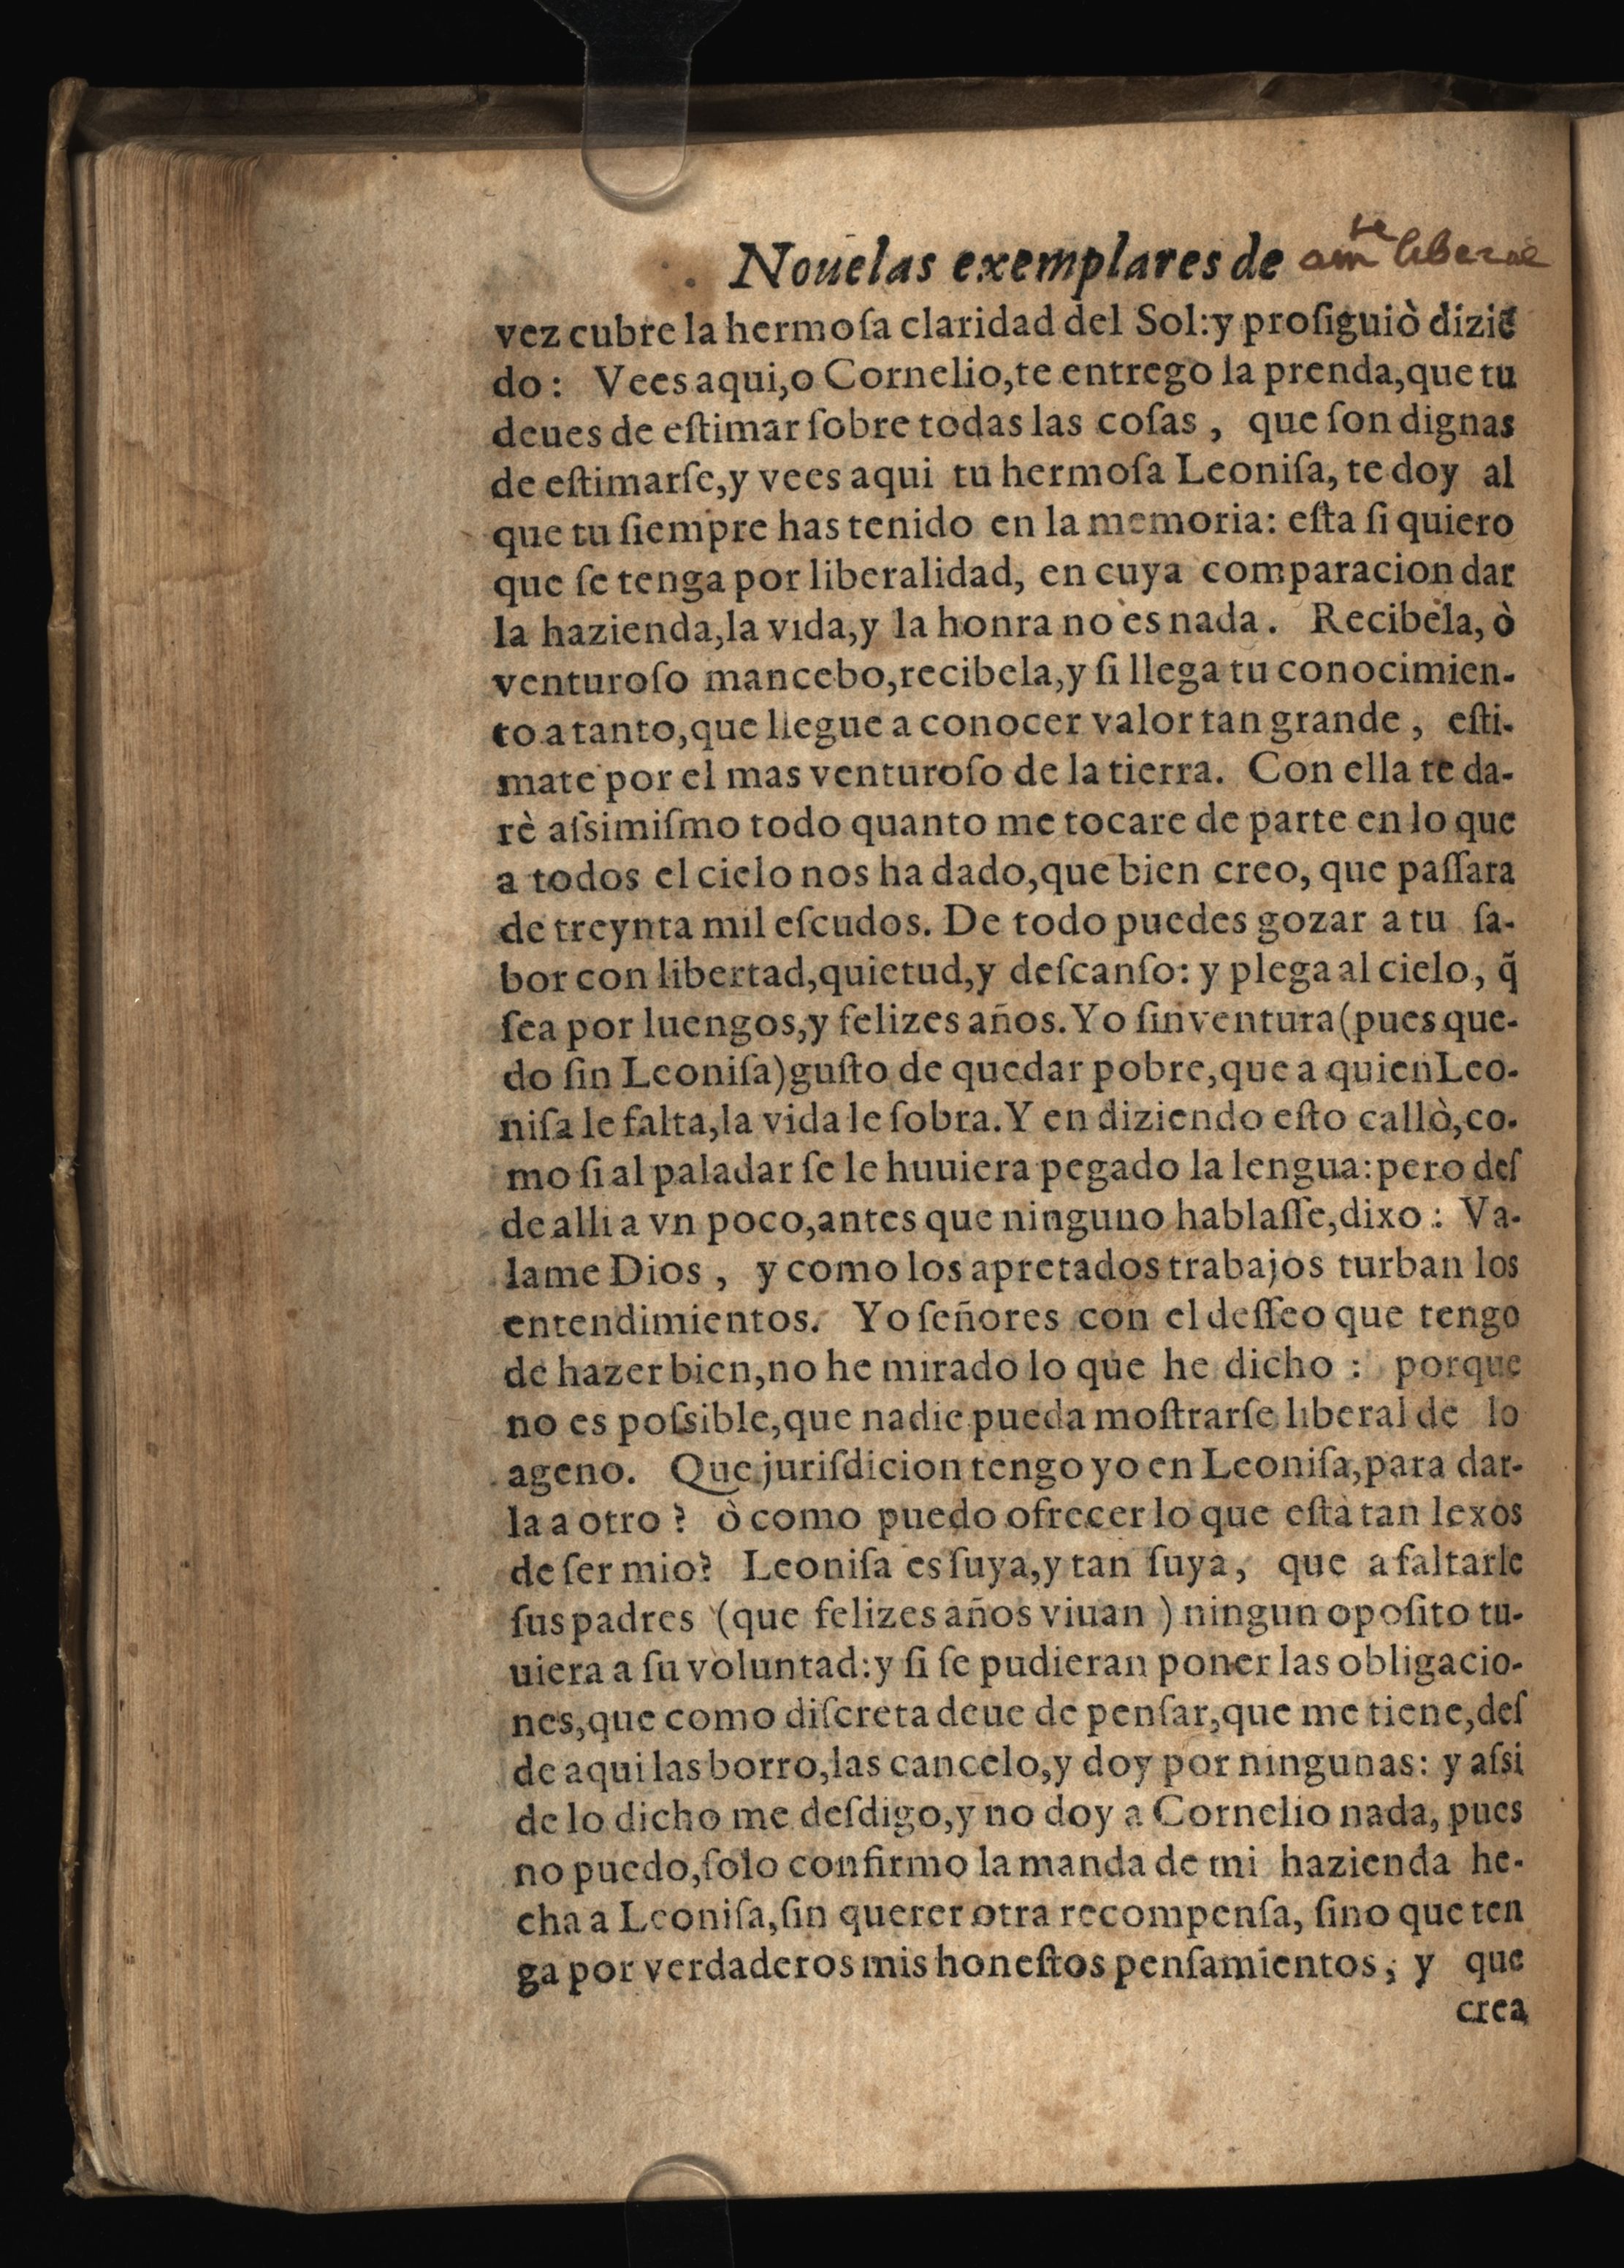 Nouelas exemplares de am^te liberal
vez cubre la hermoſa claridad del Sol:y proſiguiò diziẽ
do: Vees aqui,o Cornelio,te entrego la prenda,que tu
deues de eſtimar ſobre todas las coſas, que ſon dignas
de eſtimarſe,y vees aqui tu hermoſa Leoniſa, te doy al
que tu ſiempre has tenido en la memoria: eſta ſi quiero
que ſe tenga por liberalidad, en cuya comparacion dar
la hazienda,la vida,y la honra no es nada. Recibela, ò
venturoſo mancebo,recibela,y ſi llega tu conocimien-
to a tanto,que llegue a conocer valor tan grande, eſti-
mate por el mas venturoſo de la tierra. Con ella te da-
rè aſsimiſmo todo quanto me tocare de parte en lo que
a todos el cielo nos ha dado,que bien creo, que paſſara
de treynta mil eſcudos. De todo puedes gozar a tu ſa-
bor con libertad,quietud,y deſcanſo: y plega al cielo, q̃
ſea por luengos,y felizes años.Yo ſin ventura(pues que-
do ſin Leoniſa)guſto de quedar pobre,que a quien Leo-
niſa le falta,la vida le ſobra.Y en diziendo eſto callò,co-
mo ſi al paladar ſe le huuiera pegado la lengua:pero deſ
de alli a vn poco,antes que ninguno hablaſſe,dixo: Va-
lame Dios, y como los apretados trabajos turban los
entendimientos. Yo ſeñores con el deſſeo que tengo
de hazer bien,no he mirado lo que he dicho: porque
no es poſsible,que nadie pueda moſtrarſe liberal de lo
ageno. Que juriſdicion tengo yo en Leoniſa,para dar-
la a otro? ò como puedo ofrecer lo que eſtà tan lexos
de ſer mio? Leoniſa es ſuya,y tan ſuya, que a faltarle
ſus padres (que felizes años viuan) ningun opoſito tu-
uiera a ſu voluntad:y ſi ſe pudieran poner las obligacio-
nes,que como diſcreta deue de penſar,que me tiene,deſ
de aqui las borro,las cancelo,y doy por ningunas: y aſsi
de lo dicho me deſdigo,y no doy a Cornelio nada, pues
no puedo,ſolo confirmo la manda de mi hazienda he-
cha a Leoniſa,ſin querer otra recompenſa, ſino que ten
ga por verdaderos mis honeſtos penſamientos, y que
crea